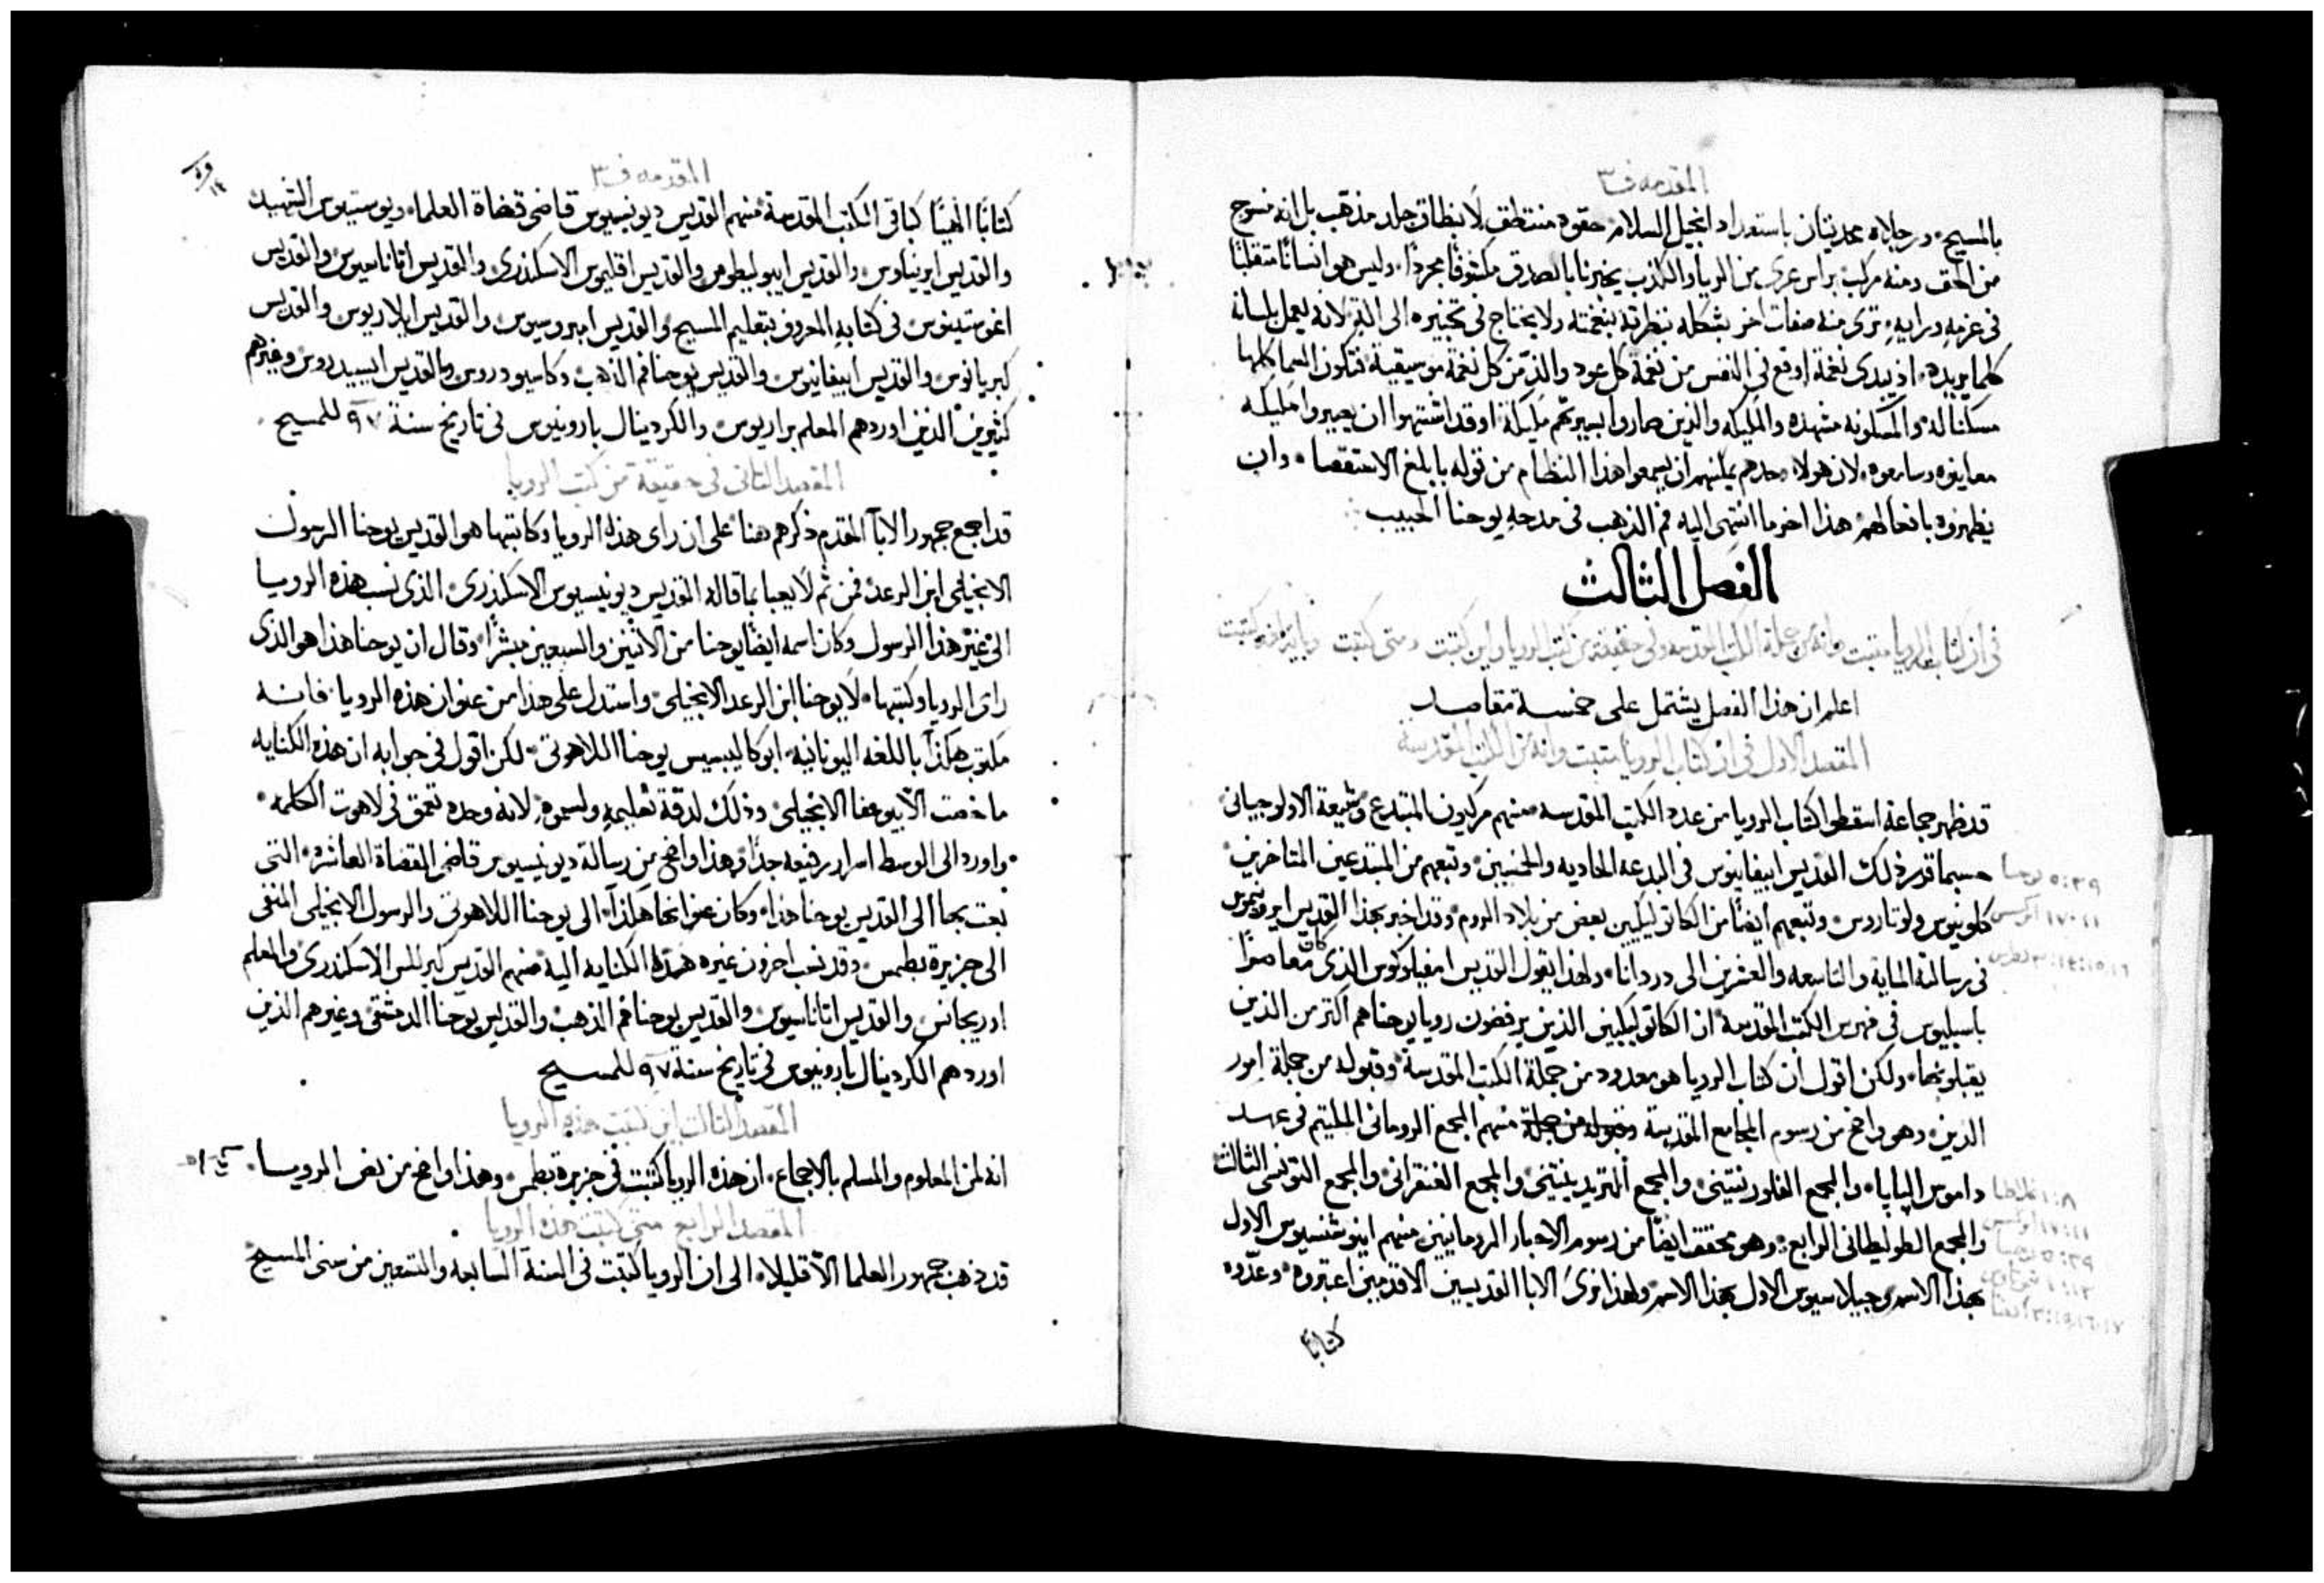 المقدمه ف٣
بالمسيح، ورجلاه محذيتان باستعداد انجيل السلام، حقوه منتطق لا بنطاق جلد مذهب بل انه منسوج
من الحق ومنه مركب براس عرى من الريا والكذب يخبرنا بالصدق مكشوفًا مجردًا، وليس هو انسانًا متقلبًا
في عزمه ورايه، ترى منه صفات اخر بشكله بنظرته بنغمته ولا يحتاج في تخبيره الى القبر لانه يعمل بلسانه
كلما يريده، اذ يبدى نغمة اوقع في النفس من نغمة كل عود والذ من كل نغمة موسيقية، فتكون السما كلها
مسكنا له، والمسكونه مشهده والمليكه والذين صاروا بسيرتهم مليكة، او قد اشتهوا ان يصيروا مليكه
معاينوه وسامعوه، لان هولاء وحدهم يمكنهم ان يسمعوا هذا النظام من قوله بابلغ الاستقصا، وان
يظهروه بافعالهم، هذا اخر ما انتهى اليه فم الذهب في مدحه يوحنا الحبيب
الفصل الثالث
في ان كتاب الرويا مثبت وانه من جملة الكتب المقدسه وفي حقيقة من كتب الرويا واين كتبت ومتى كتبت وباية لغه كتبت
اعلم ان هذا الفصل يشتمل على خمسة مقاصد
المقصد الاول في ان كتاب الرويا مثبت وانه من الكتب المقدسة
قد ظهر جماعة اسقطوا كتاب الرويا من عدد الكتب المقدسه منهم مركيون المبتدع وشيعة الاولوجياني
حسبما قرر ذلك القديس ابيفانيوس في البدعه الحاديه والخمسين، وتبعهم من المبتدعين المتاخرين
كلوينوس ولوتاروس، وتبعهم ايضًا من الكاتوليكيين بعض من بلاد الروم، وقد اخبر بهذا القديس ايرونيموس
في رسالته الماية والتاسعه والعشرين الى دردانا، ولهذا يقول القديس امفيلوكوس الذي كان معاصرًا
باسيليوس في فهرس الكتب المقدسة، ان الكاتوليكيين الذين يرفضون رويا يوحنا هم اكثر من الذين
يقبلونها، ولكن اقول ان كتاب الرويا هو معدود من جملة الكتب المقدسة، وقبوله من جملة امور
الدين، وهو واضح من رسوم المجامع المقدسة وقبوله من جملة منهم المجمع الروماني الملتيم في عهد
داموس الپاپا، والمجمع الفلورنتيني، والمجمع التريدينتيني والمجمع القنقراني، والمجمع التونسي الثالث
والمجمع الطوليطاني الرابع، وهو محقق ايضًا من رسوم الاحبار الرومانيين منهم اينوشنسيوس الاول
بهذا الاسم، وجيلاسيوس الاول بهذا الاسم، ولهذا نرى الابا القديسين الاقدمين اعتبروه، وعدّوه
كتابًا
٥:٣٩ يوحنا
١٧:١١ ابركسيس
١:٨ غلاطيا
المقدمه ف٣
كتابًا الهيًا كباقي الكتب المقدسة، منهم القديس ديونيسيوس قاضي قضاة العلما، ويوستينوس الشهيد
والقديس ايريناوس، والقديس ايبوليطوس والقديس اقليموس الاسكندري، والقديس اتاناسيوس والقديس
اغوستينوس في كتابه المعروف بتعليم المسيح، والقديس امبروسيوس والقديس ايلاريوس والقديس
كبريانوس والقديس ابيفانيوس والقديس يوحنا فم الذهب وكاسيودروس والقديس ايسيدروس وغيرهم
كثيرين الذين اوردهم المعلم براريوس والكردينال بارونيوس في تاريخ سنة ٩٧ للمسيح
المقصد الثاني في حقيقة من كتب الرويا
قد اجمع جمهور الابآ المقدم ذكرهم هنا على ان راى هذه الرويا وكاتبها هو القديس يوحنا الرسول
الانجيلي ابن الرعد، فمن ثم لا يعبا بما قاله القديس ديونيسيوس الاسكندري، الذي نسب هذه الرويا
الى غير هذا الرسول وكان اسمه ايضًا يوحنا من الاثنين والسبعين مبشرًا، وقال ان يوحنا هذا هو الذي
راى الرويا وكتبها، لا يوحنا ابن الرعد الانجيلي، واستدل على هذا من عنوان هذه الرويا، فانه
مكتوب هكذا باللغه اليونانيه، ابوكاليبسيس يوحنا اللاهوتي، لكن اقول في جوابه ان هذه الكنايه
ما خصت الا بيوحنا الانجيلي، وذلك لدقة تعليمه ولسموه، لانه وحده تعمق في لاهوت الكلمه،
واورد الى الوسط اسرار رفيعه جدًا، وهذا واضح من رسالة ديونيسيوس قاضي القضاة العاشرة، التي
بعث بها الى القديس يوحنا هذا، وكان عنوانها هكذا، الى يوحنا اللاهوتي والرسول الانجيلي المنفي
الى جزيرة بطمس، وقد نسب اخرون غيره هذه الكنايه اليه، منهم القديس كيرللس الاسكندري، والمعلم
اوريجانس والقديس اتاناسيوس والقديس يوحنا فم الذهب والقديس يوحنا الدمشقي، وغيرهم الذين
اوردهم الكردينال بارونيوس في تاريخ سنة ٩٧ للمسيح
المقصد الثالث اين كتبت هذه الرويا
انه لمن المعلوم والمسلم بالاجماع، ان هذه الرويا كتبت في جزيرة بطمس، وهذا واضح من نص الرويا
المقصد الرابع متى كتبت هذه الرويا
قد ذهب جمهور العلما الا قليلا، الى ان الرويا كتبت في السنة السابعه والتسعين من سني المسيح